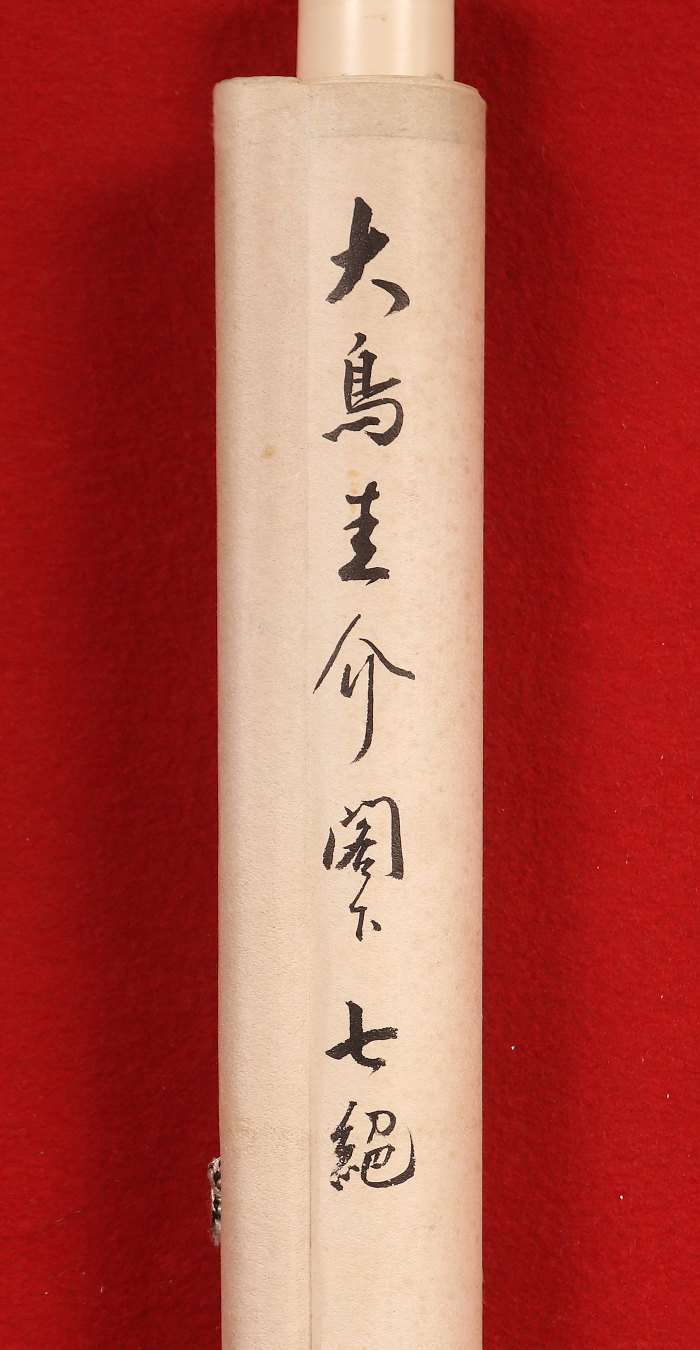 大鳥圭介閣下七絕